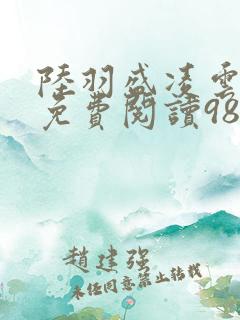 陸羽盛凌雲
免費閱讀98
趙建強
未經同意禁止轉載